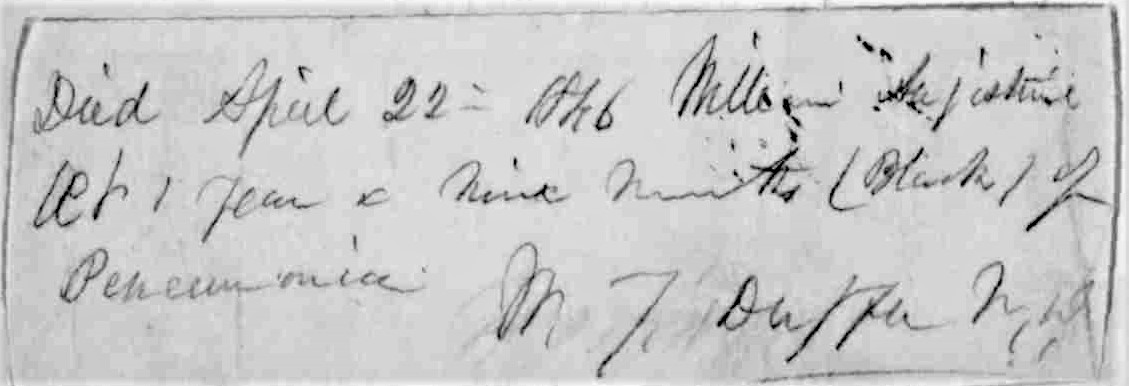 Died April 22= 1846 William Augustine
Aet 1 year & nine months (Black) of
Pencumonia
M J Duffer M.D.